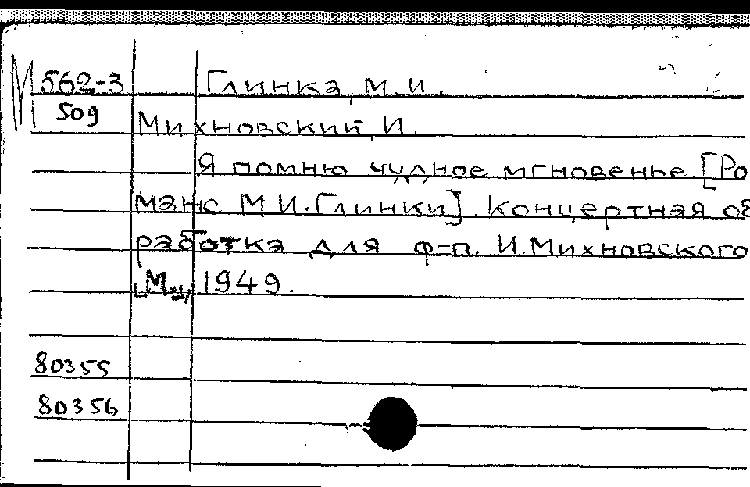 М 562-3 Глинка, М.И.
509
Михновский, И.
Я помню чудное мгновенье [Ро
манс М.И.Глинки]. Концертная об
работка для ф-п. И.Михновского
[М.,] 1949.
80355
80356